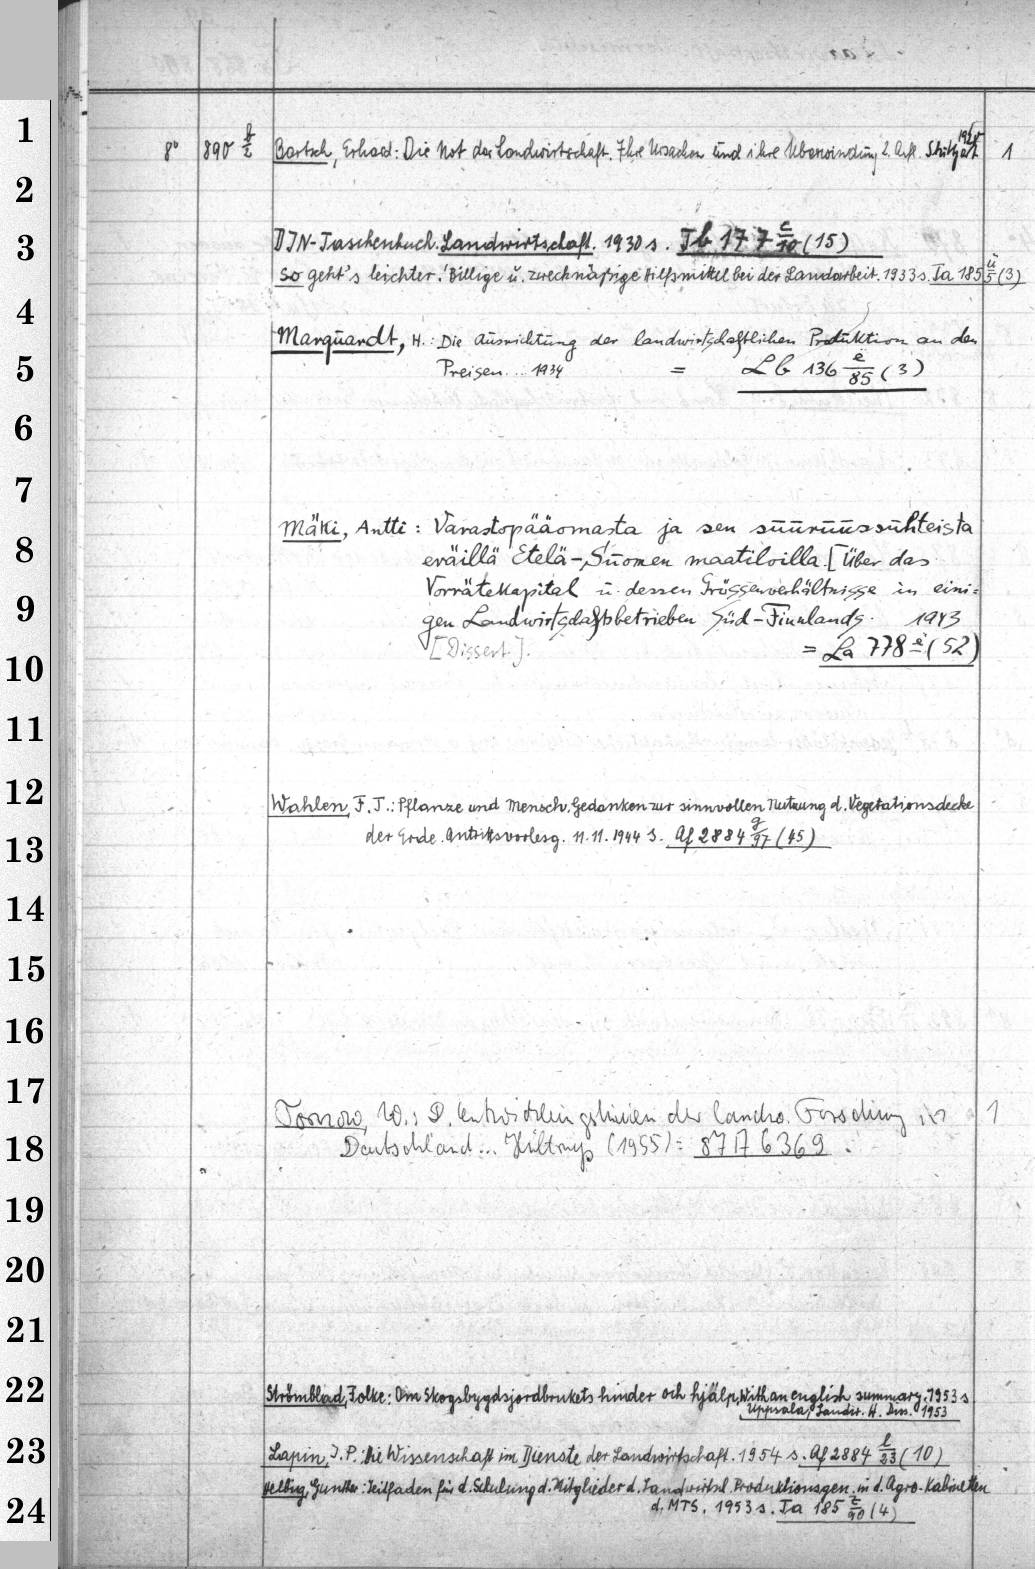 1
8° 890 b/2 Bartsch, Erhard: Die Not der Landwirtschaft. Ihre Ursachen und ihre Überwindung 2. Aufl. Stuttgart 1
2
3 DIN-Taschenbuch. Landwirtschaft. 1930 s. Tb 177 c/10 (15)
So geht's leichter! Billige u. zweckmäßige Hilfsmittel bei der Landarbeit. 1933 s. Ta 185 ü/5 (3)
4
Marquardt, H.: Die Ausrichtung der landwirtschaftlichen Produktion an den
5 Preisen... 1934 = Lb 136 e/85 (3)
6
7
Mäki, Antti: Varastopääomasta ja sen suuruussuhteista
8 eräillä Etelä-Suomen maatiloilla. [Über das
9 Vorrätekapital u. dessen Grössenverhältnisse in eini=
gen Landwirtschaftsbetrieben Süd-Finnlands. 1943
10 [Dissert.]. = La 778 e (52)
11
12 Wahlen, F. T.: Pflanze und Mensch. Gedanken zur sinnvollen Nutzung d. Vegetationsdecke
13 der Erde. Antrittsvorlesg. 11.11.1944 s. Af 2884 g/97 (45)
14
15
16
17 Tornow, W.: D. Entwicklungslinien der landw. Forschung in 1
18 Deutschland... Hiltrup (1955) = 87176369.
19
20
21
22 Strömblad, Folke: Om Skogsbygdsjordbrukets hinder och hjälp, With an english summary. 1953 s
Uppsala, Landw. H. Diss. 1953
23 Lapin, I. P.: Die Wissenschaft im Dienste der Landwirtschaft. 1954 s. Af 2884 l/23 (10)
Helbig, Günther: Leitfaden für d. Schulung d. Mitglieder d. Landwirtsch. Produktionsgen. in d. Agro-Kabinetten
24 d. MTS. 1953 s. Ta 185 z/90 (4)